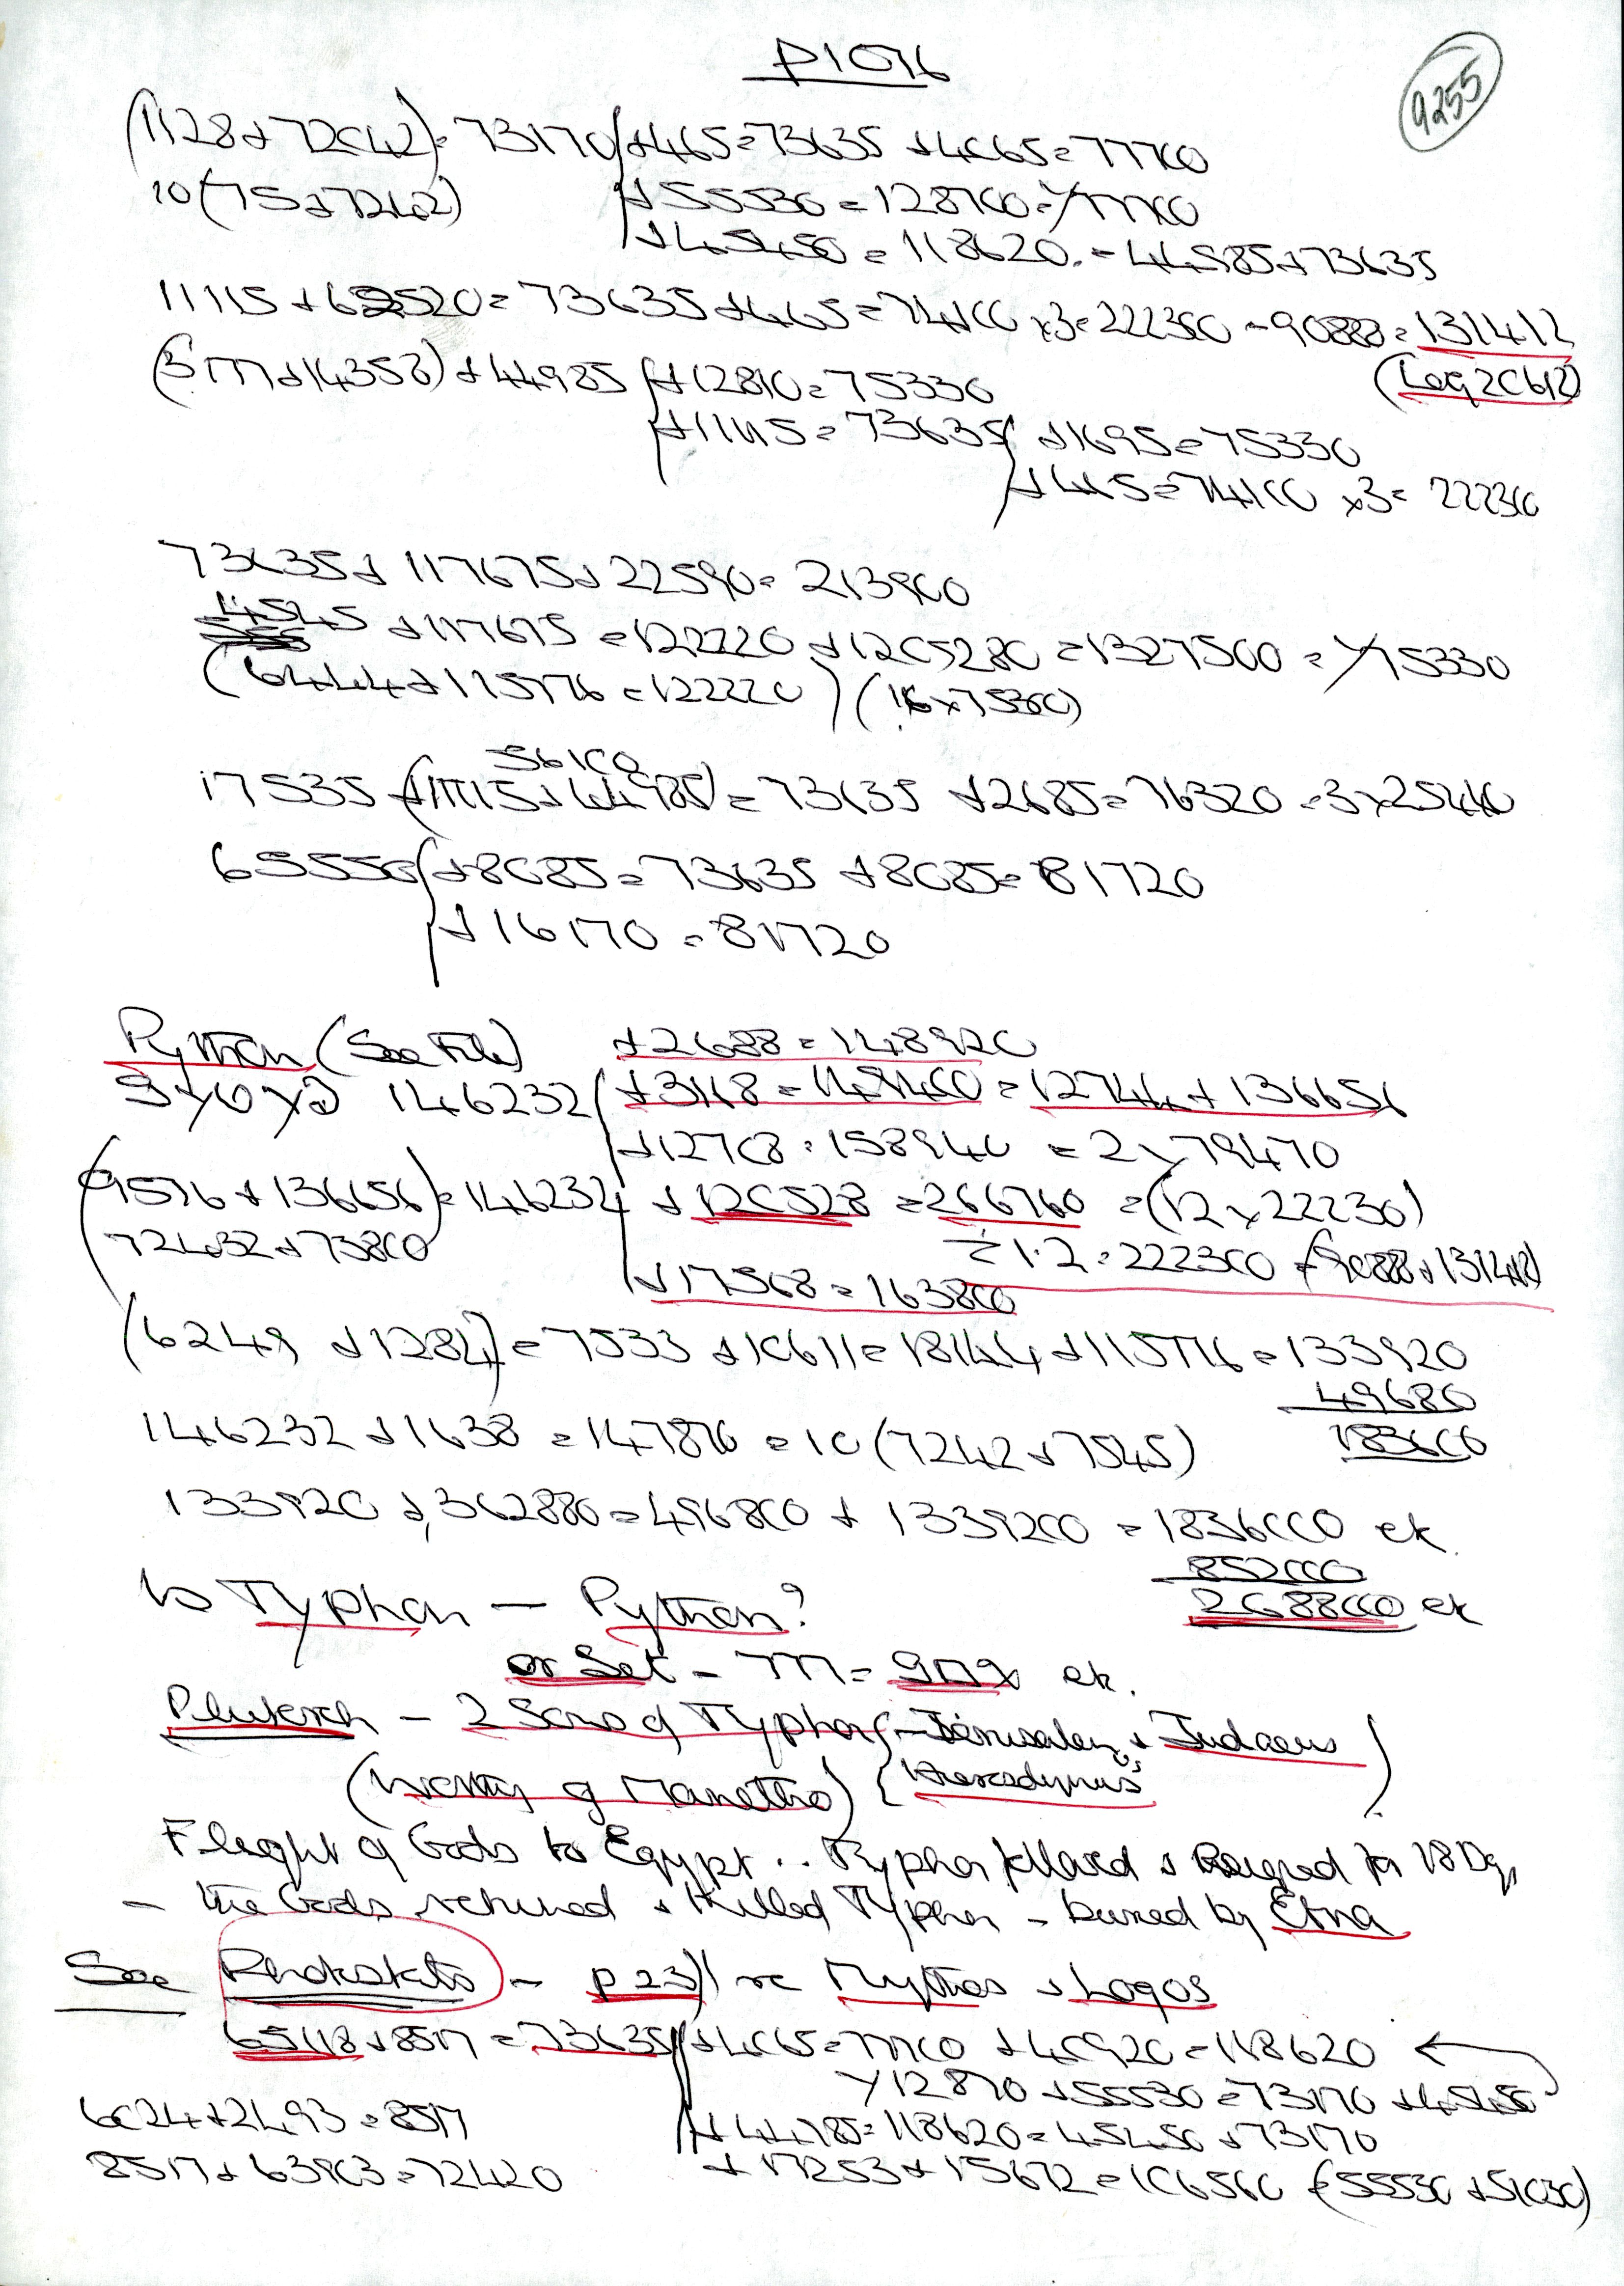 P1076
9255
(1128+72042)=73170 +465=73635 +4065=77700
10(75+7242) +55530=128700=/77700
+45450=118620.=44985+73635
11115+62520=73635+465=74100 x3=222300 -90888=131412
(3777+14358)+44985 +12810=75330 (Log 20612)
+11115=73635 +1695=75330
+465=74100 x3=222300
73635+117675+22590=213900
4545+117675=122220+1205280=1327500=/75330
(6444+115776=122220) (16x75330)
56100
17535+(11115+44985)=73635 +2685=76320=3x25440
65550 +8085=73635 +8085=81720
+16170=81720
Python (See File) +2688=148920
146232 +3168=149400=12744+136656
+12708=158940=2x79470
(9576+136656)=146232 +120528=266760=(12x22230)
72432+73800 =1.2=222300 (90888+131412)
+17568=163800
(6249+1284)=7533+10611=18144+115776=133920
49680
146232+1638=147870=10(7242+7545) 183600
133920+362880=496800+1339200=1836000 ek
852000
Is Typhon — Python? 2688000 ek
or Set - 777= ek.
Plutarch - 2 Sons of Typhon - Jerusalem & Judaeus
(Writing of Manetho) Hierosolymus
Flight of Gods to Egypt .. Typhon followed & Reigned for 18 Dys
- the Gods returned & killed Typhon - buried by Etna
See - p 23 re Mythos & Logos
65118+8517=73635 +4065=77700 +40920=118620
/12870 +55530=73170 +45450
6024+2493=8517 +44985=118620=45450+73170
8517+63903=72420 +17253+15672=106560 (55530+51030)